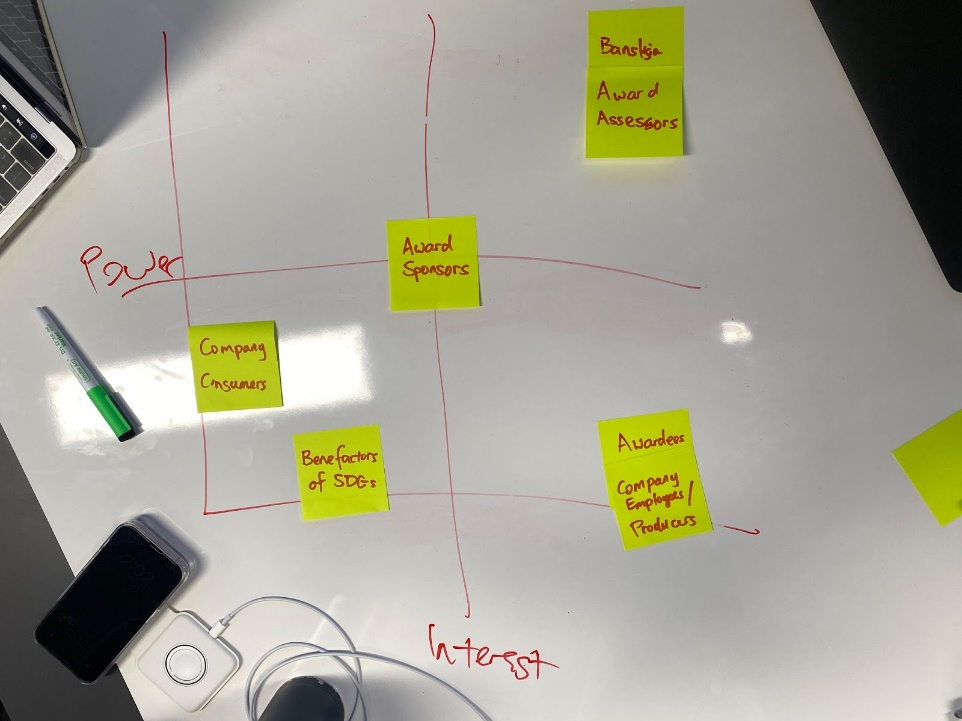 Banskia
Award
Assessors
Power
Award
Sponsors
Company
Consumers
Benefactors
of SDGs
Awardees
Company
Employees/
Producers
Interest